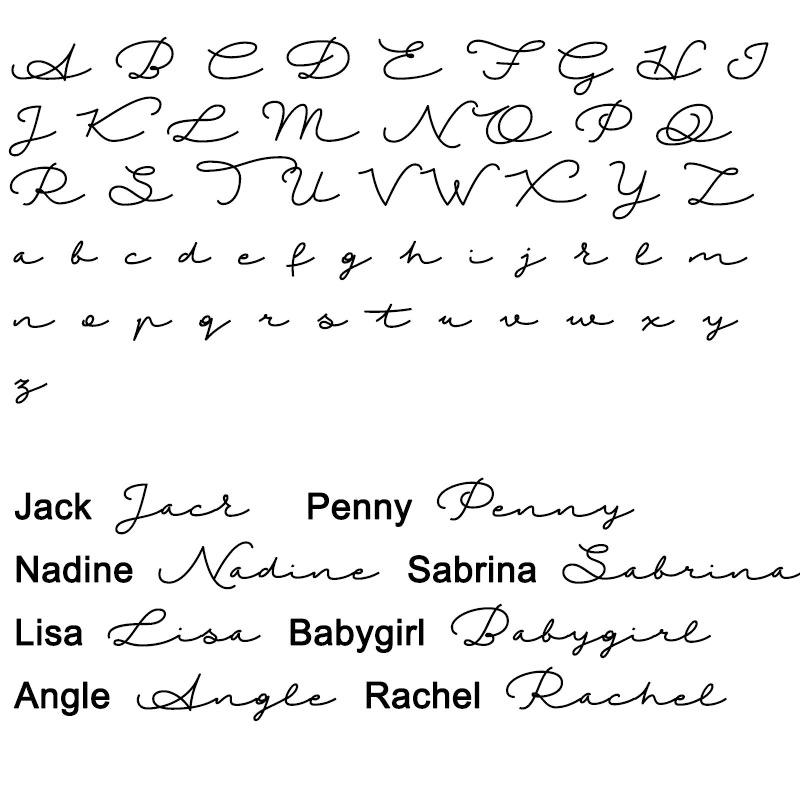 A B C D E F G H I
J K L M N O P Q
R S T U V W X Y Z
a b c d e f g h i j k l m
n o p q r s t u v w x y
z
Jack Jack Penny Penny
Nadine Nadine Sabrina Sabrina
Lisa Lisa Babygirl Babygirl
Angle Angle Rachel Rachel